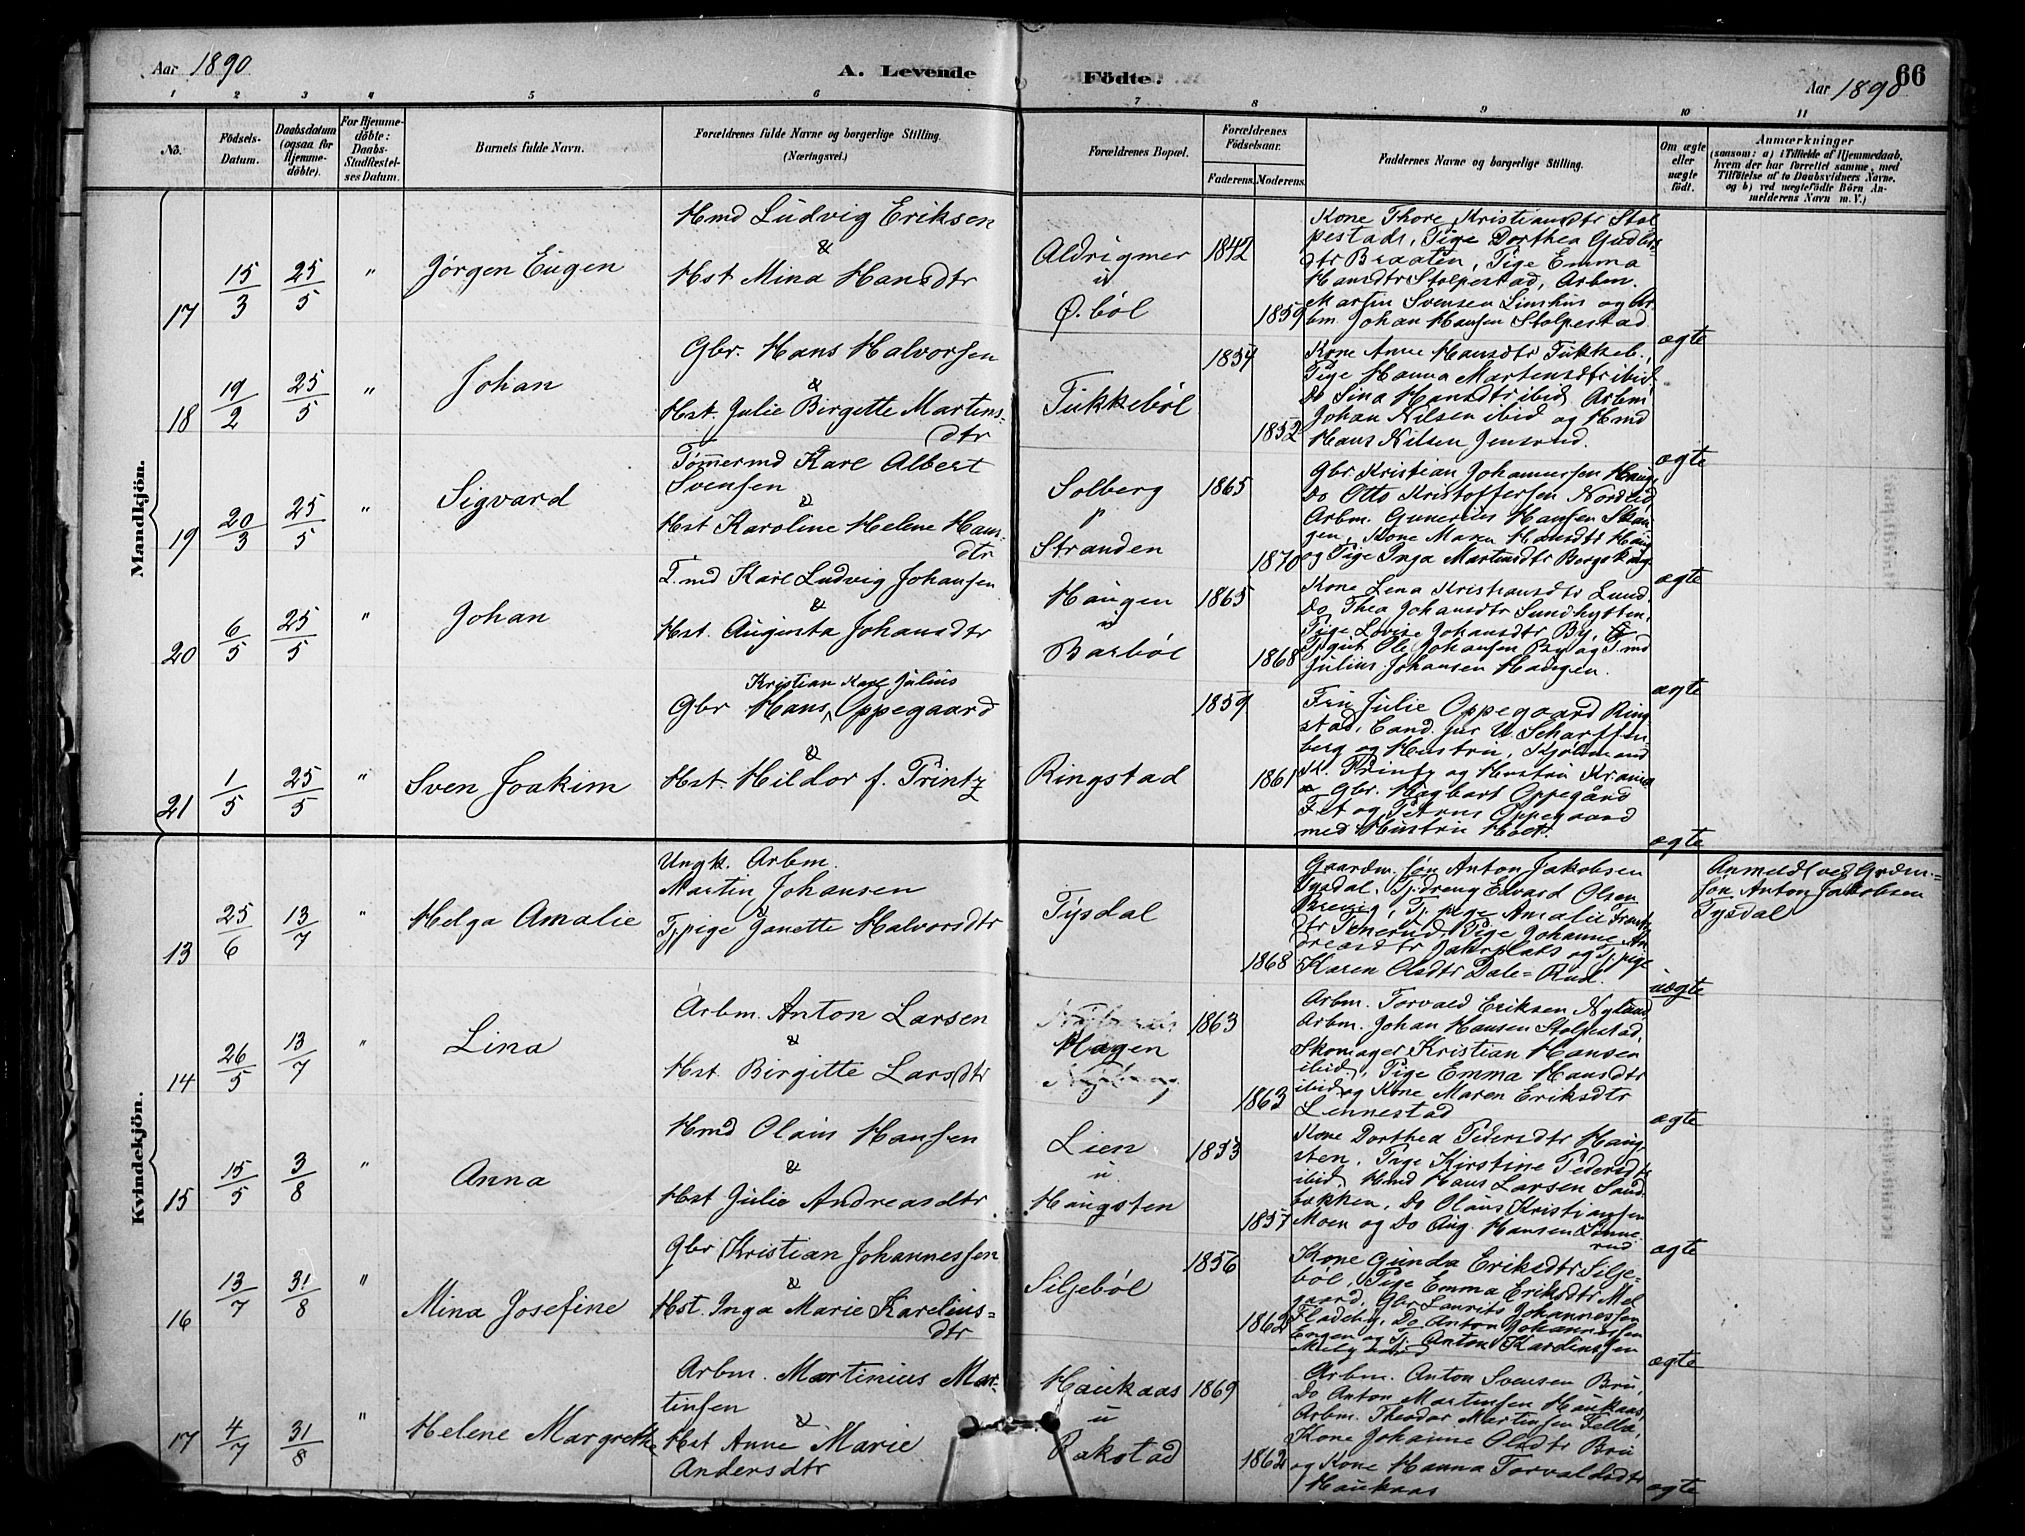 Aar 1890
A. Levende
Födte.
Aar 1890
66
1 2 3 4 5 6 7 8 9 10 11
No.
Födsels-
Datum.
Daabsdatum
(ogsaa for
Hjemme-
döbte).
For Hjemme-
döbte:
Daabs-
Stadfæstel-
ses Datum.
Barnets fulde Navn.
Forældrenes fulde Navne og borgerlige Stilling.
(Næringsvei.)
Forældrenes Bopæl.
Forældrenes
Födselsaar.
Faderens. Moderens.
Faddernes Navne og borgerlige Stilling.
Om ægte
eller
uægte
födt.
Anmærkninger
(saasom: a) i Tilfælde af Hjemmedaab,
hvem der har forrettet samme, med
Tilföielse af to Daabsvidners Navne,
og b) ved uægtefödte Börn An-
melderens Navn m. V.)
Mandkjön.
17
15/3
25/5
"
Jørgen Eugen
Hmd Ludvig Eriksen
&
Hst Mina Hansdtr
Aldrigmer
u
Ø. böl
1842
1859
Kone Thore Kristiansdtr Stol-
pestad, Pige Dorthea Gudbr-
dtr Braaten, Pige Emma
Hansdtr Stolpestad, Arbm.
Martin Svensen Limhus og Ar-
bm. Johan Hansen Stolpestad
ægte
18
19/2
25/5
"
Johan
Gbr. Hans Halvorsen
&
Hst. Julie Birgitte Martens-
dtr
Tukkeböl
1854
1852
Kone Anne Hansdtr Tukkeb.,
Pige Hanna Martensdtr ibid
Do Lina Hansdtr ibid, Arbm
Johan Nilsen ibid og Hmd
Hans Nilsen Jensrud.
ægte
19
20/3
25/5
"
Sigvard
Tømmermd Karl Albert
Svensen
&
Hst Karoline Helene Hans-
dtr
Solberg
p
Stranden
1865
1870
Gbr Kristian Johannessen Haug,
Do Otto Kristoffersen Nordlid,
Arbm. Gunerius Hansen Skau-
gen, Kone Maren Hansdtr Haug
og Pige Inga Martinsdtr Bergskaug
ægte
20
6/5
25/5
"
Johan
T.md Karl Ludvig Johansen
&
Hst. Augusta Johansdtr
Haugen
u
Barböl
1865
1868
Kone Lena Kristiansdtr Lund,
Do Thea Johansdtr Sundhytten,
Pige Lovise Johansdtr By,
Tjgut Ole Johansen By og T.md
Julius Johansen Haugen.
ægte
21
1/5
25/5
"
Sven Joakim
Kristian Karl Julius
Gbr Hans Oppegaard
&
Hst. Hildor f. Printz
Ringstad
1859
1861
Fru Julie Oppegaard Ring-
stad, Cand. jur U. Scharffen
berg og Hustru, Kjøbmand
K. Printz og Hustru Kr.ania
Gbr. Hagbart Oppegård
Fet og Petrus Oppegaard
med Hustru Holt.
ægte
Kvindekjön.
13
25/6
13/7
"
Helga Amalie
Ungk. Arbm.
Martin Johansen
&
Tjpige Janette Halvorsdtr
Tysdal
1868
Gaardm. søn Anton Jakobsen
Tysdal, Tjdreng Edvard Olsen
Brevig, Tj.pige Amalie Frants
dtr Tenerud, Pige Johanne An-
dreasdtr Jahrplats og Tj.pige
Karen Olsdtr Dale-Rud.
uægte
Anmeldt ved Grdm-
søn Anton Jakobsen
Tysdal
14
26/5
13/7
"
Lina
Arbm. Anton Larsen
&
Hst. Birgitte Larsdtr
Hagen
1863
1863
Arbm. Torvald Eriksen Nyland
Arbm. Johan Hansen Stolpestad,
Skomager Kristian Hansen
ibid, Pige Emma Hansdtr
ibid og Kone Maren Eriksdtr
Lennestad
ægte
15
15/5
3/8
"
Anna
Hmd Olaus Hansen
&
Hst Julie Andreasdtr
Lien
u.
Haugsten
1853
1857
Kone Dorthea Pedersdtr Haug-
sten, Pige Kirstine Pedersdtr
ibid, Hmd Hans Larsen Sand-
bakken, Do Olaus Kristiansen
Moen og Do Aug. Hansen Lønne-
rud
ægte
16
13/7
31/8
"
Mina Josefine
Gbr Kristian Johannessen
&
Hst. Inga Marie Karelius-
dtr
Siljeböl
1856
1862
Kone Gunda Eriksdtr Silje-
böl, Pige Emma Eriksdtr Mel
gaard, Gbr Laurits Johannessen
Fladeby, Do Anton Johannessen
Engen og Tj. Anton Kareliussen
ægte
17
4/7
31/8
"
Helene Margrethe
Arbm. Martinius Mar-
tinsen
&
Hst Anne Marie
Andersdtr
Haukaas
u
Rakstad
1869
1862
Arbm. Anton Svensen Bru,
Do Anton Martinsen Haukaas,
Arbm. Theodor Martinsen Fella,
Kone Johanne Olsdtr Bru
og Kone Hanna Torvaldsdtr
Haukaas
ægte